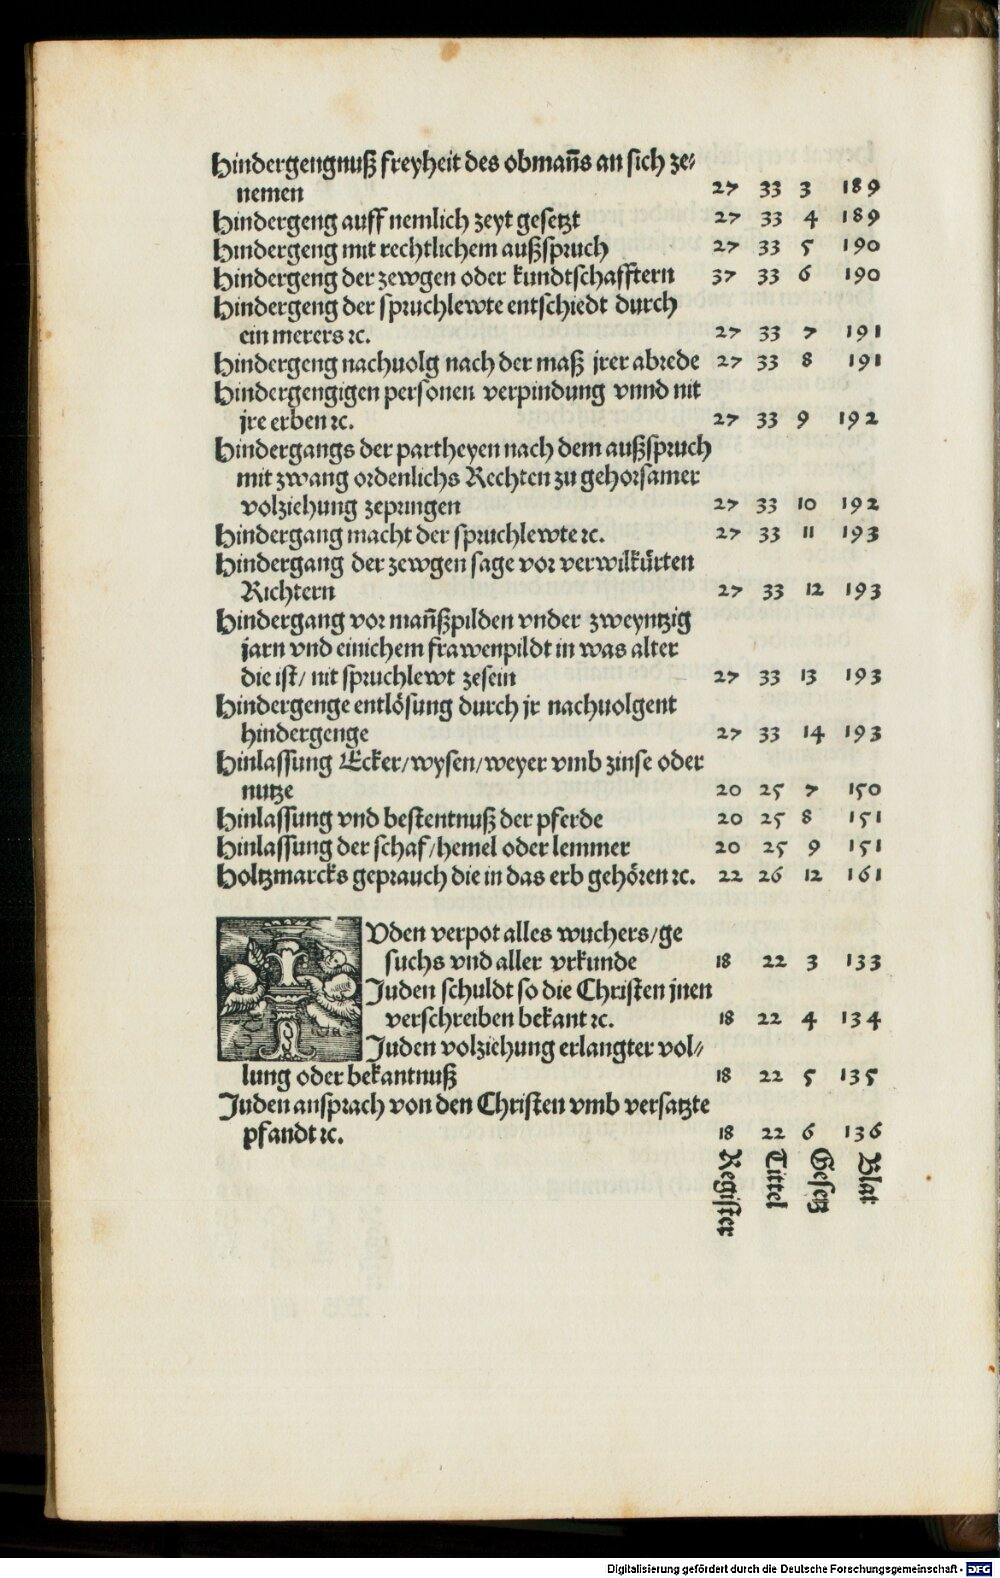 Hindergengnuß freyheit des obmañs an sich ze⸗
nemen 27 33 3 189
Hindergeng auff nemlich zeyt gesetzt 27 33 4 189
Hindergeng mit rechtlichem außspruch 27 33 5 190
Hindergeng der zewgen oder kundtschafftern 37 33 6 190
Hindergeng der spruchlewte entschiedt durch
ein merers ⁊c. 27 33 7 191
Hindergeng nachuolg nach der maß jrer abrede 27 33 8 191
Hindergengigen personen verpindung vnnd nit
jre erben ⁊c. 27 33 9 192
Hindergangs der partheyen nach dem außspruch
mit zwang ordenlichs Rechten zu gehorsamer
volziehung zepringen 27 33 10 192
Hindergang macht der spruchlewte ⁊c. 27 33 11 193
Hindergang der zewgen sage vor verwilkürten
Richtern 27 33 12 193
Hindergang vor mañßpilden vnder zweyntzig
jarn vnd einichem frawenpildt in was alter
die ist/ nit spruchlewt zesein 27 33 13 193
Hindergenge entlösung durch jr nachuolgent
hindergenge 27 33 14 193
Hinlassung Ecker/wysen/weyer vmb zinse oder
nutze 20 25 7 150
Hinlassung vnd bestentnuß der pferde 20 25 8 151
Hinlassung der schaf/hemel oder lemmer 20 25 9 151
Holtzmarcks geprauch die in das erb gehören ⁊c. 22 26 12 161
IVden verpot alles wuchers/ge
suchs vnd aller vrkunde 18 22 3 133
Juden schuldt so die Christen jnen
verschreiben bekant ⁊c. 18 22 4 134
Juden volziehung erlangter vol⸗
lung oder bekantnuß 18 22 5 135
Juden ansprach von den Christen vmb versatzte
pfandt ⁊c. 18 22 6 136
Register Tittel Gesetz Blat
Digitalisierung gefördert durch die Deutsche Forschungsgemeinschaft - DFG